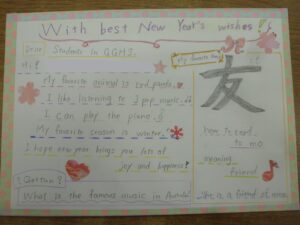 With best New Year's wishes!
Dear Students in QGHS
Hi!
My favorite animal is red panda.
I like listening to J pop music.
I can play the piano.
My favorite season is winter.
I hope new year brings you lots of
joy and happiness!
Question?
What is the famous music in Australia?
My favorite
友
how to read
to mo
meaning
friend
She is a friend of mine.